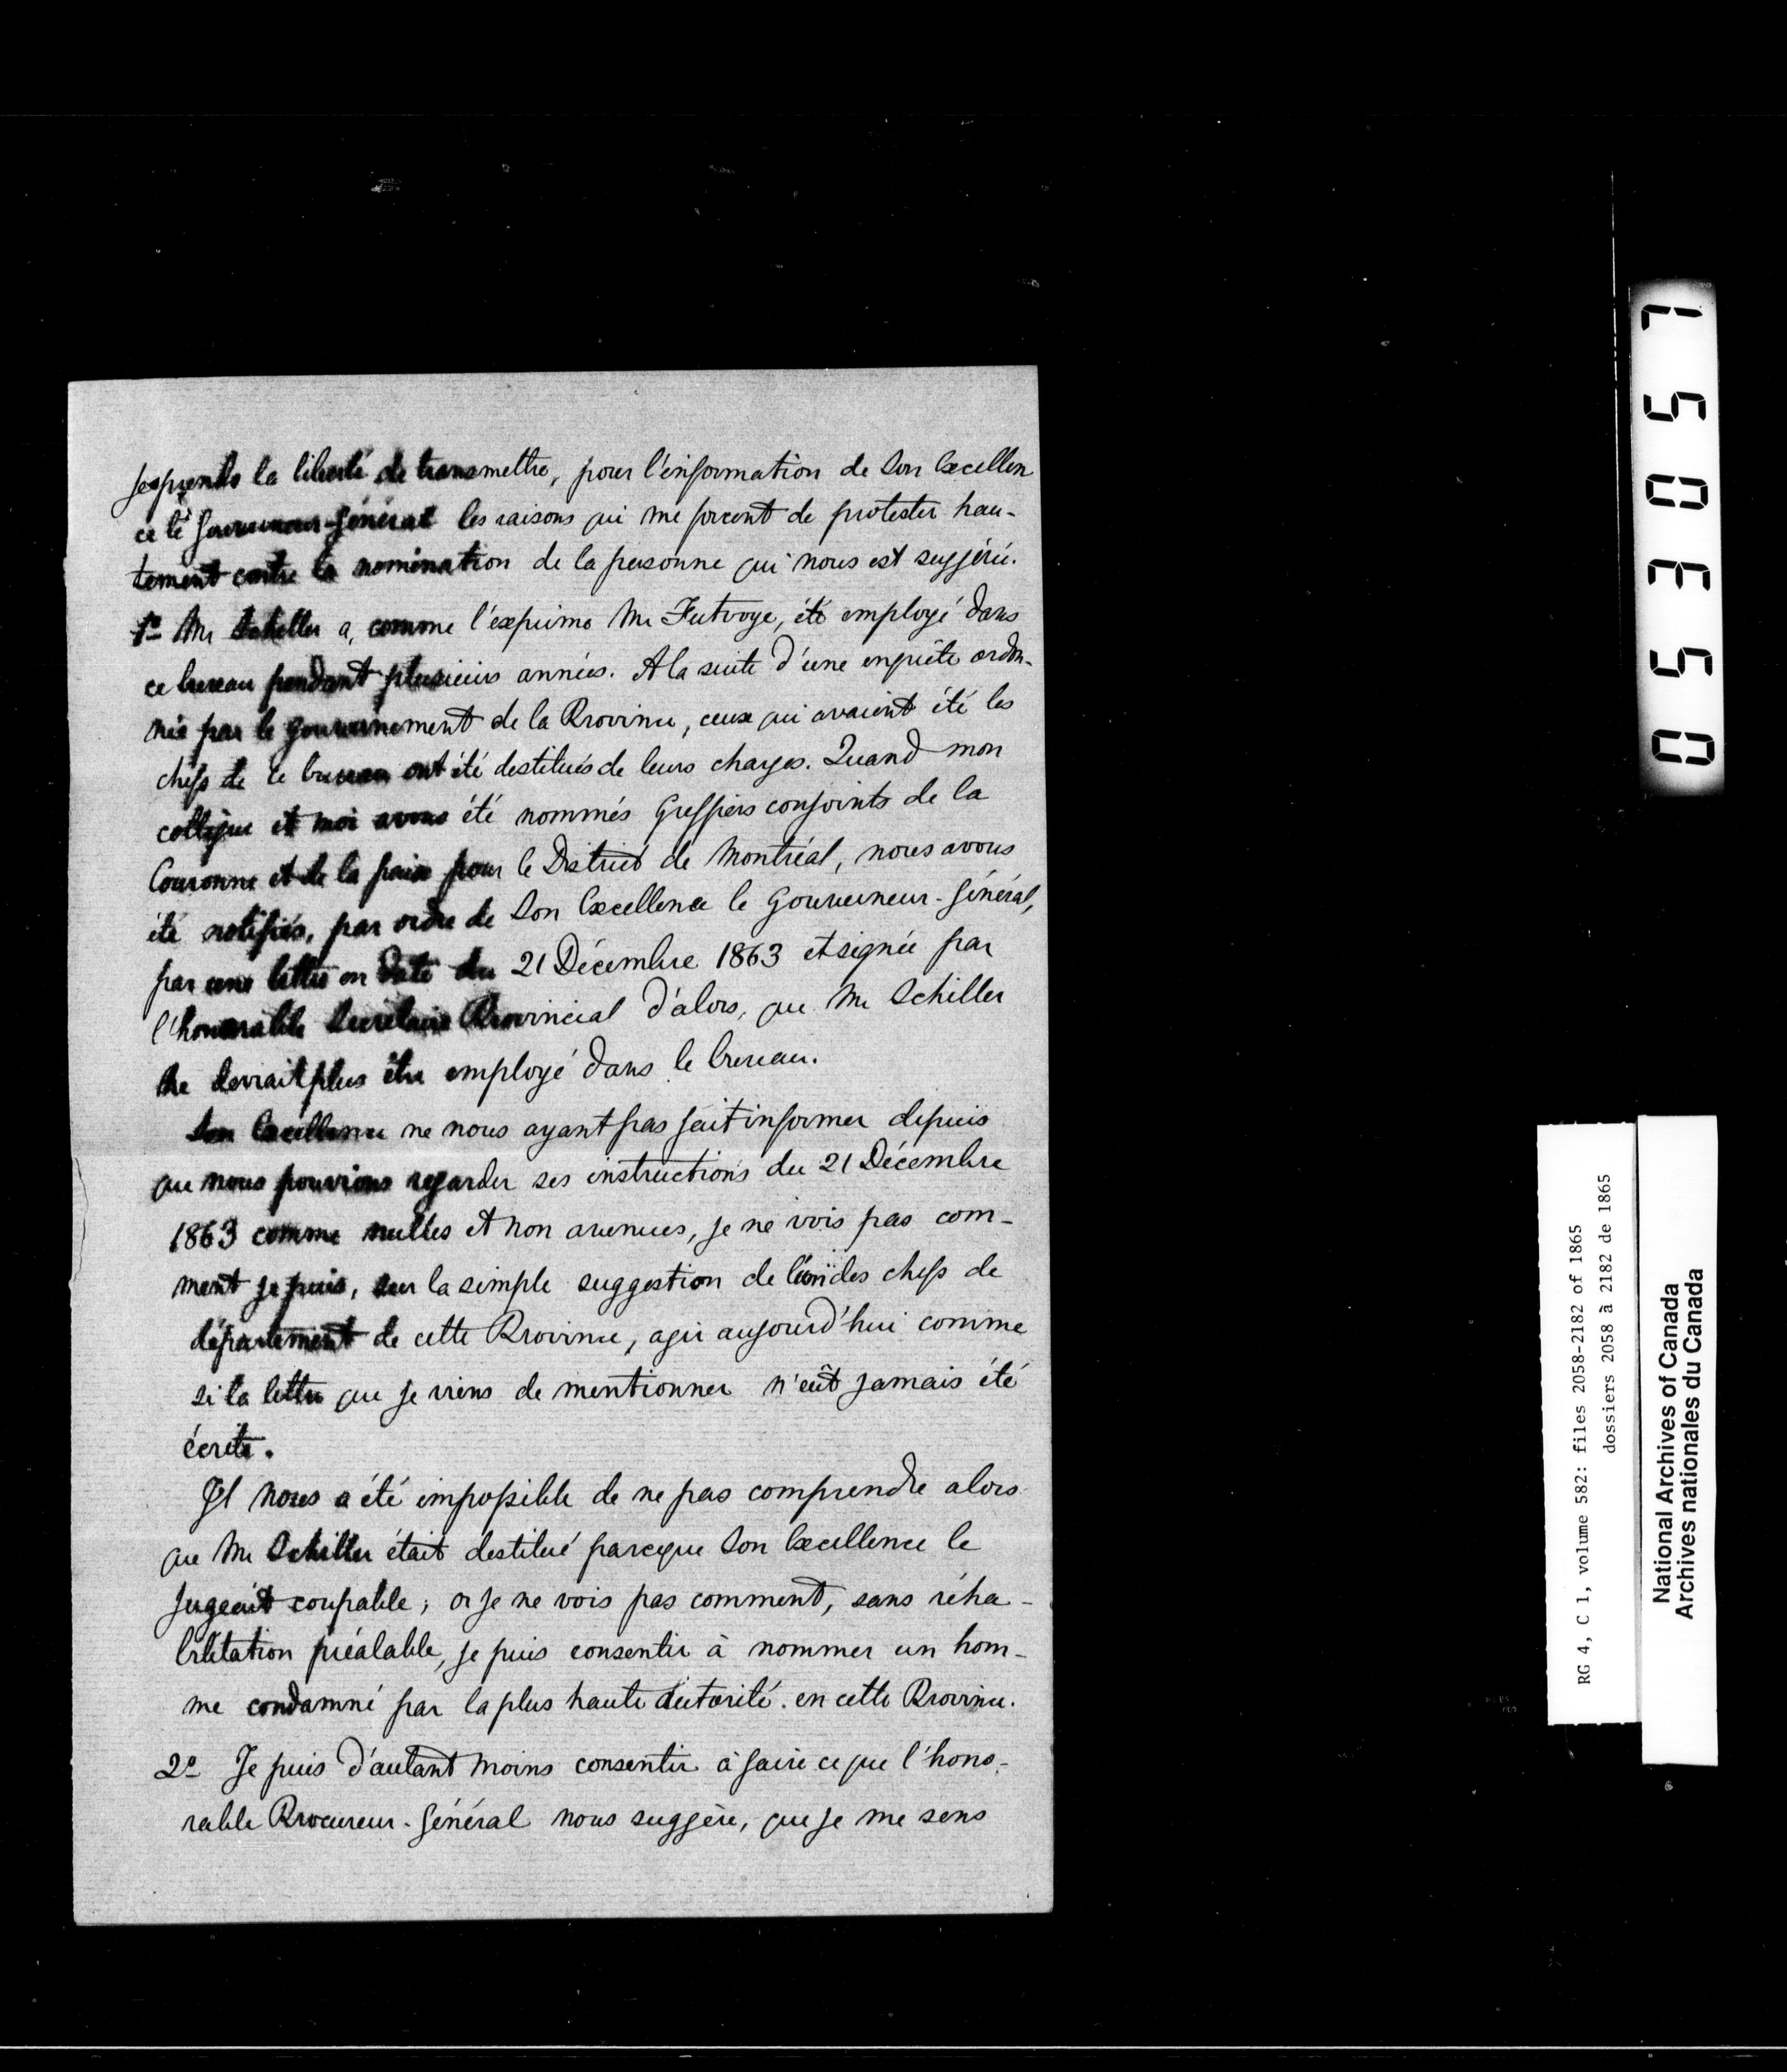 Je prends la liberté de transmettre, pour l'information de Son Excellen
ce le Gouverneur-Général les raisons qui me forcent de protester hau-
tement contre la nomination de la personne qui nous est suggérée.
1º Mr Schiller a, comme l'exprime Mr Futvoye, été employé dans
ce bureau pendant plusieurs années. A la suite d'une enquête ordon-
née par le gouvernement de la Province, ceux qui avaient été les
chefs de ce bureau ont été destitués de leurs charges. Quand mon
collègue et moi avons été nommés Greffiers conjoints de la
Couronne et de la paix pour le District de Montréal, nous avons
été notifiés, par ordre de Son Excellence le Gouverneur-Général,
par une lettre en date du 21 Décembre 1863 et signée par
l'honorable Secrétaire Provincial d'alors, que Mr Schiller
ne devrait plus être employé dans le bureau.
Son Excellence ne nous ayant pas fait informer depuis
que nous pouvions regarder ses instructions du 21 Décembre
1863 comme nulles et non avenues, je ne vois pas com-
ment je puis, sur la simple suggestion de l'un des chefs de
département de cette Province, agir aujourd'hui comme
si la lettre que je viens de mentionner n'eût jamais été
écrite.
Il nous a été impossible de ne pas comprendre alors
que Mr Schiller était destitué parceque Son Excellence le
jugeait coupable; or je ne vois pas comment, sans réha-
bilitation préalable, je puis consentir à nommer un hom-
me condamné par la plus haute autorité en cette Province.
2º Je puis d'autant moins consentir à faire ce que l'hono-
rable Procureur-Général nous suggère, que je me sens
050357
RG 4, C 1, volume 582: files 2058-2182 of 1865
dossiers 2058 à 2182 de 1865
National Archives of Canada
Archives nationales du Canada